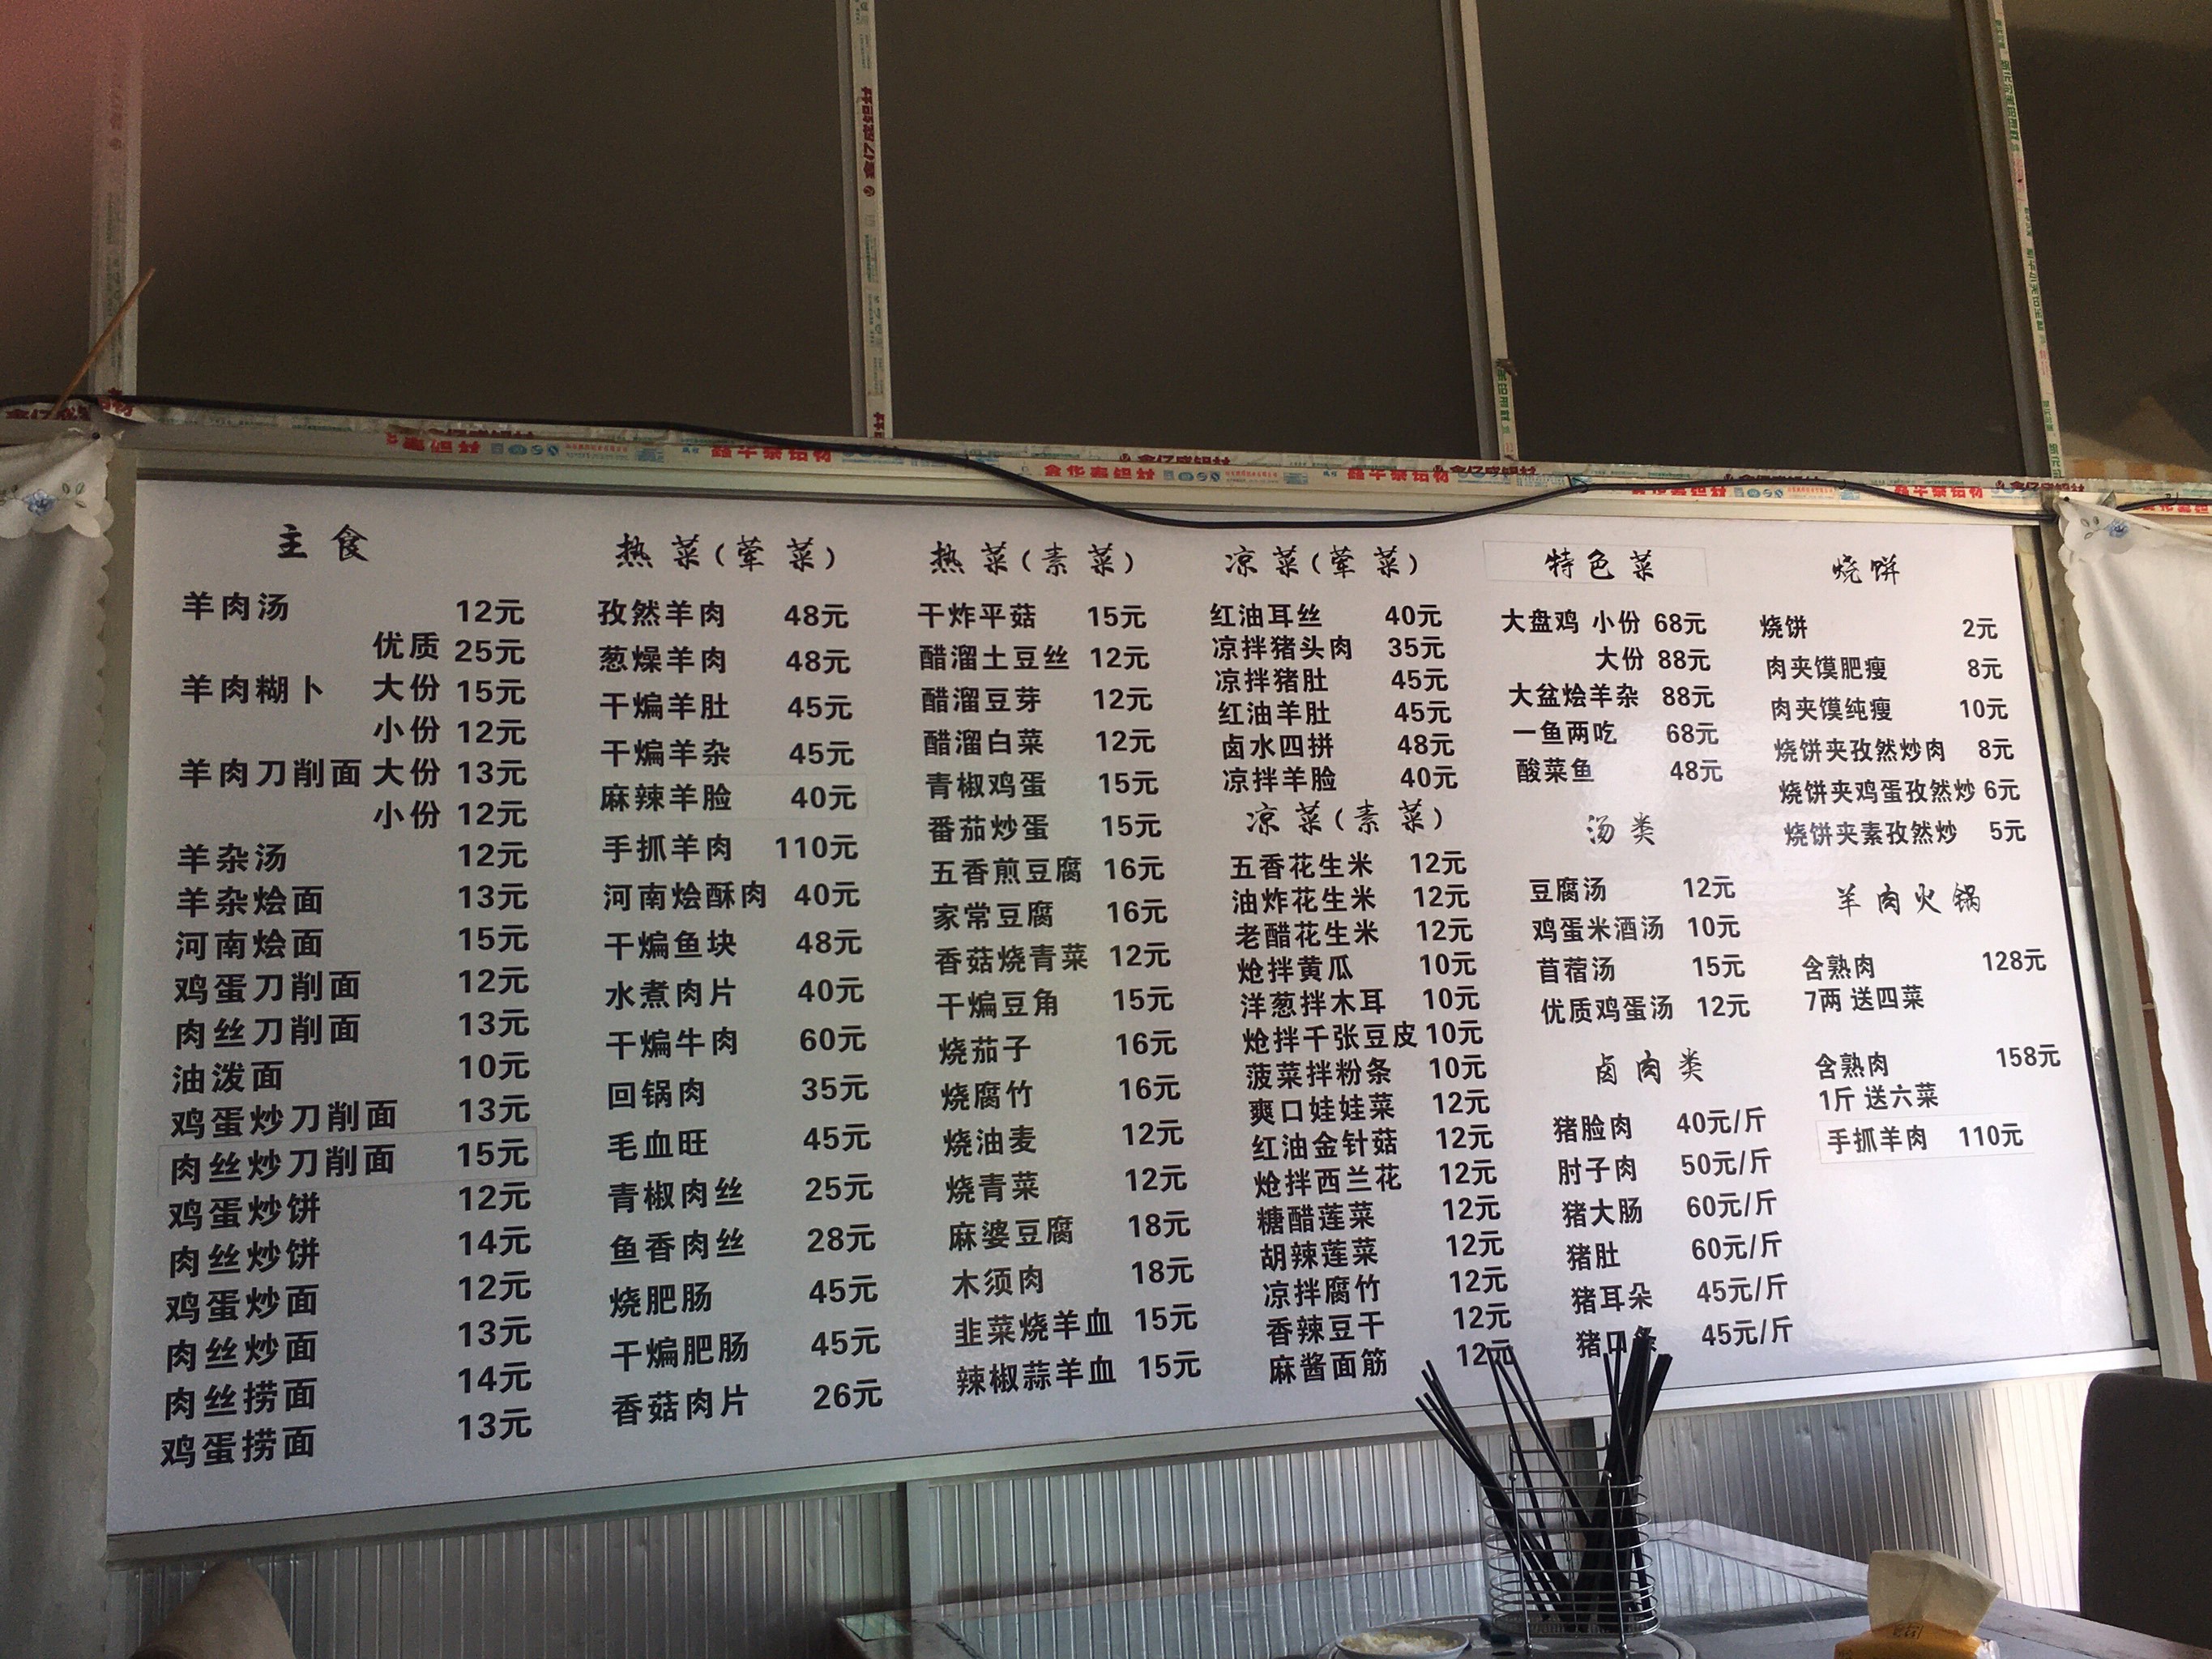 主食
羊肉汤 12元
优质 25元
羊肉糊卜 大份 15元
小份 12元
羊肉刀削面 大份 13元
小份 12元
羊杂汤 12元
羊杂烩面 13元
河南烩面 15元
鸡蛋刀削面 12元
肉丝刀削面 13元
油泼面 10元
鸡蛋炒刀削面 13元
肉丝炒刀削面 15元
鸡蛋炒饼 12元
肉丝炒饼 14元
鸡蛋炒面 12元
肉丝炒面 13元
肉丝捞面 14元
鸡蛋捞面 13元
热菜(荤菜)
孜然羊肉 48元
葱燥羊肉 48元
干煸羊肚 45元
干煸羊杂 45元
麻辣羊脸 40元
手抓羊肉 110元
河南烩酥肉 40元
干煸鱼块 48元
水煮肉片 40元
干煸牛肉 60元
回锅肉 35元
毛血旺 45元
青椒肉丝 25元
鱼香肉丝 28元
烧肥肠 45元
干煸肥肠 45元
香菇肉片 26元
热菜(素菜)
干炸平菇 15元
醋溜土豆丝 12元
醋溜豆芽 12元
醋溜白菜 12元
青椒鸡蛋 15元
番茄炒蛋 15元
五香煎豆腐 16元
家常豆腐 16元
香菇烧青菜 12元
干煸豆角 15元
烧茄子 16元
烧腐竹 16元
烧油麦 12元
烧青菜 12元
麻婆豆腐 18元
木须肉 18元
韭菜烧羊血 15元
辣椒蒜羊血 15元
凉菜(荤菜)
红油耳丝 40元
凉拌猪头肉 35元
凉拌猪肚 45元
红油羊肚 45元
卤水四拼 48元
凉拌羊脸 40元
凉菜(素菜)
五香花生米 12元
油炸花生米 12元
老醋花生米 12元
炝拌黄瓜 10元
洋葱拌木耳 10元
炝拌千张豆皮 10元
菠菜拌粉条 10元
爽口娃娃菜 12元
红油金针菇 12元
炝拌西兰花 12元
糖醋莲菜 12元
胡辣莲菜 12元
凉拌腐竹 12元
香辣豆干 12元
麻酱面筋 12元
特色菜
大盘鸡 小份 68元
大份 88元
大盆烩羊杂 88元
一鱼两吃 68元
酸菜鱼 48元
汤类
豆腐汤 12元
鸡蛋米酒汤 10元
苜蓿汤 15元
优质鸡蛋汤 12元
卤肉类
猪脸肉 40元/斤
肘子肉 50元/斤
猪大肠 60元/斤
猪肚 60元/斤
猪耳朵 45元/斤
猪口条 45元/斤
烧饼
烧饼 2元
肉夹馍肥瘦 8元
肉夹馍纯瘦 10元
烧饼夹孜然炒肉 8元
烧饼夹鸡蛋孜然炒 6元
烧饼夹素孜然炒 5元
羊肉火锅
含熟肉 128元
7两 送四菜
含熟肉 158元
1斤 送六菜
手抓羊肉 110元